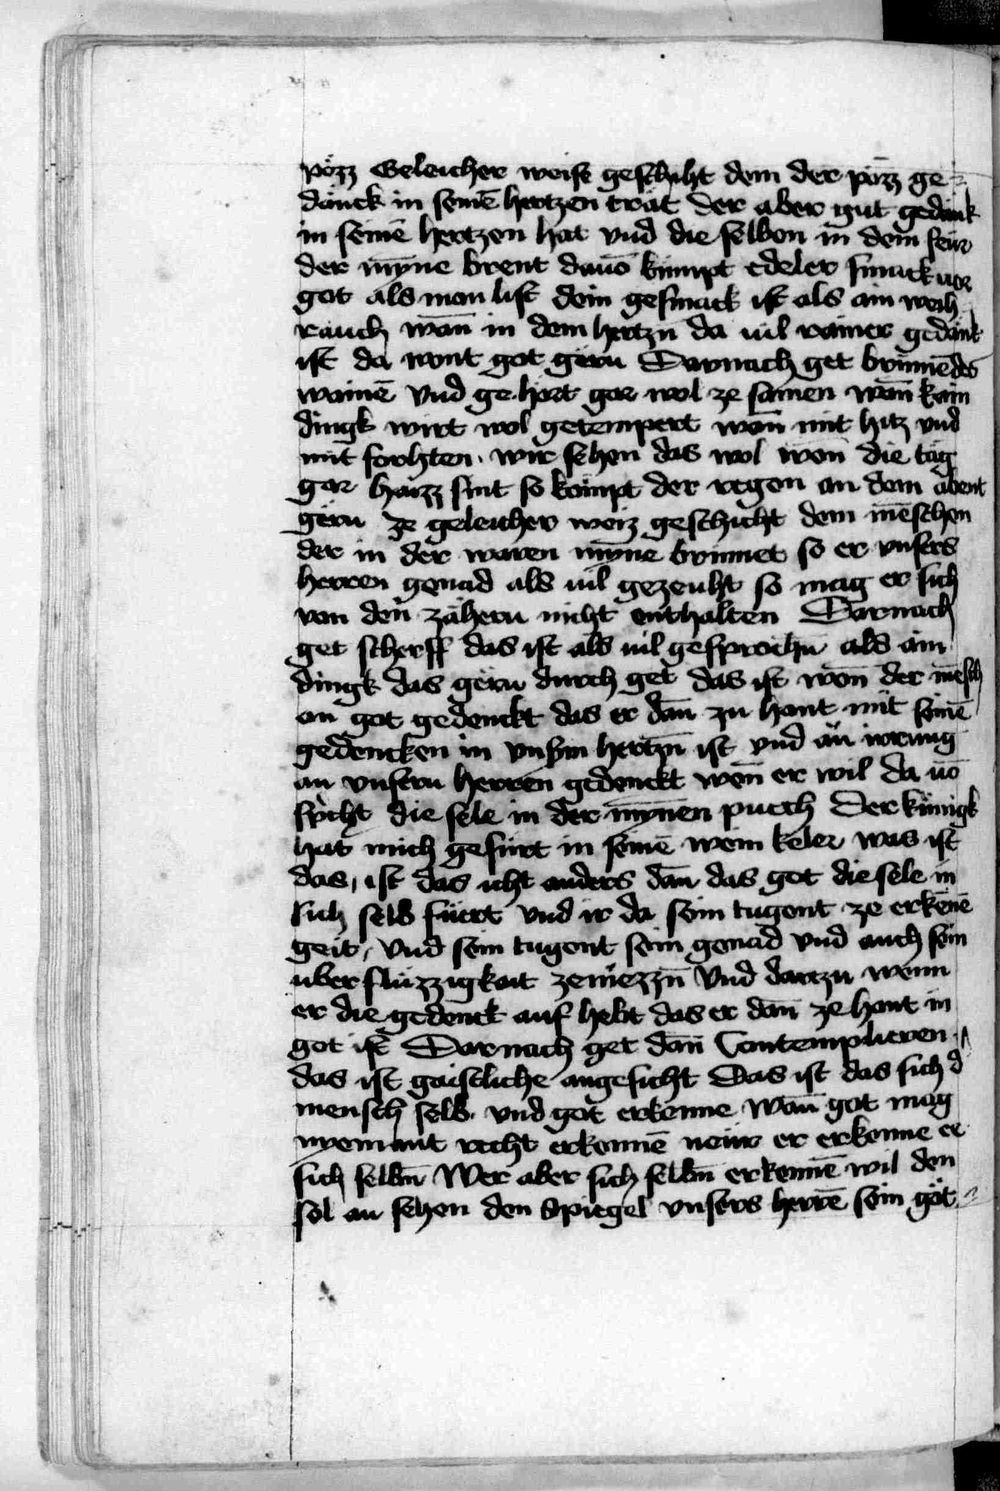 pözz Geleicher weist geschiht dem der pözz ge-
dänck in seinē hertzen trät der aber gut gedänk
in seinē hertzen hat vnd die selben in dem feur
der mȳne brent dauō kümpt edeler smack vor
got als man list dein gesmack ist als ain weih
rauch wan̄ in dem hertzn̄ da uil rainer gedänk
ist da wont got gern Darnach get brīnnēdes
wainē Vnd gehört gar wol ze samen wan̄ kain
dingk wirt wol getempert wan̄ mit hitz vnd
mit forhten. wir sehen das wol wen̄ die täg
gar haizz sint so kömpt der regen an dem abent
gern Ze geleicher weiz geschicht dem mēschen
der in der waren mȳne brinnet so er vnsers
herren genad als uil gezeuht so mag er sich
von den zähern nicht enthalten Darnach
get scherff das ist als uil gesprochn̄ als ain
dingk das gern durch get das ist wen̄ der mēsch
an got gedenckt das er dan̄ zu hant mit seinē
gedencken in vnsm hertzn̄ ist vnd an̄ irrung
an vnsern herren gedenckt wen̄ er wil da uō
spricht die sele in der mȳnen puech Der künigk
hat mich gefürt in seinē wein keler was ist
das, ist das icht anders dan̄ das got die sele in
sich selb fürt vnd ir da sein tugent ze erkēnē
geit, Vnd sein tugent sein genad vnd auch sein
uberflüzzigkait ze niezzn̄ Vnd dartzu wenn
er die gedenck auf hebt das er dan̄ ze hant in
got ist Darnach get dan̄ Contemplieren
das ist gaistliche angesicht Das ist das sich d
mensch selb. vnd got erkenne Wan̄ got mag
nyemant recht erkennē neur er erkenne ee
sich selbn̄ Wer aber sich selbn̄ erkennē wil den
sol an sehen den Spiegel vnsers herrē sein göt